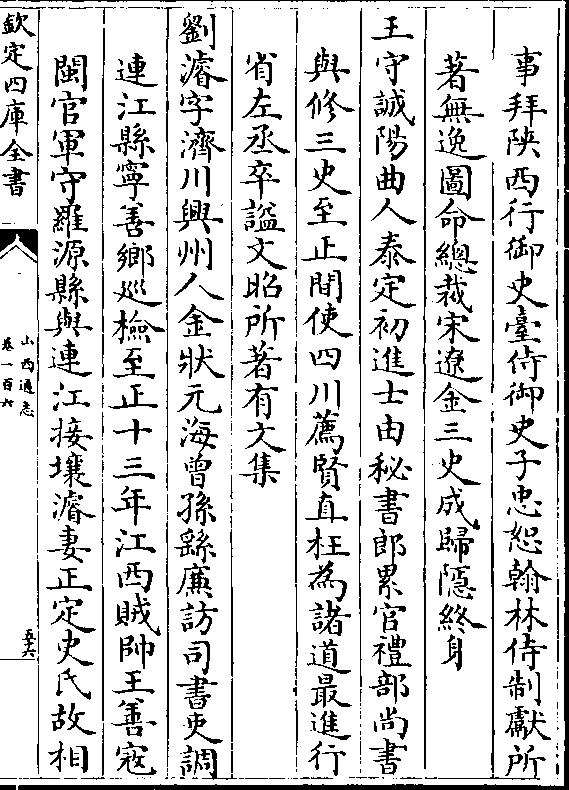 事拜陜西行御史臺侍御史子忠恕翰林侍制獻所
著無逸圖命總裁宋遼金三史成歸隱終身
王守誠陽曲人泰定初進士由秘書郎累官禮部尚書
與修三史至正間使四川薦賢直枉為諸道最進行
省左丞卒謚文昭所著有文集
劉濬字濟川興州人金狀元海曾孫繇廉訪司書吏調
連江縣寧善鄉巡檢至正十三年江西賊帥王善寇
閩官軍守羅源縣與連江接壤濬妻正定史氏故相
欽定四庫全書
山西通志
卷一百六
五六